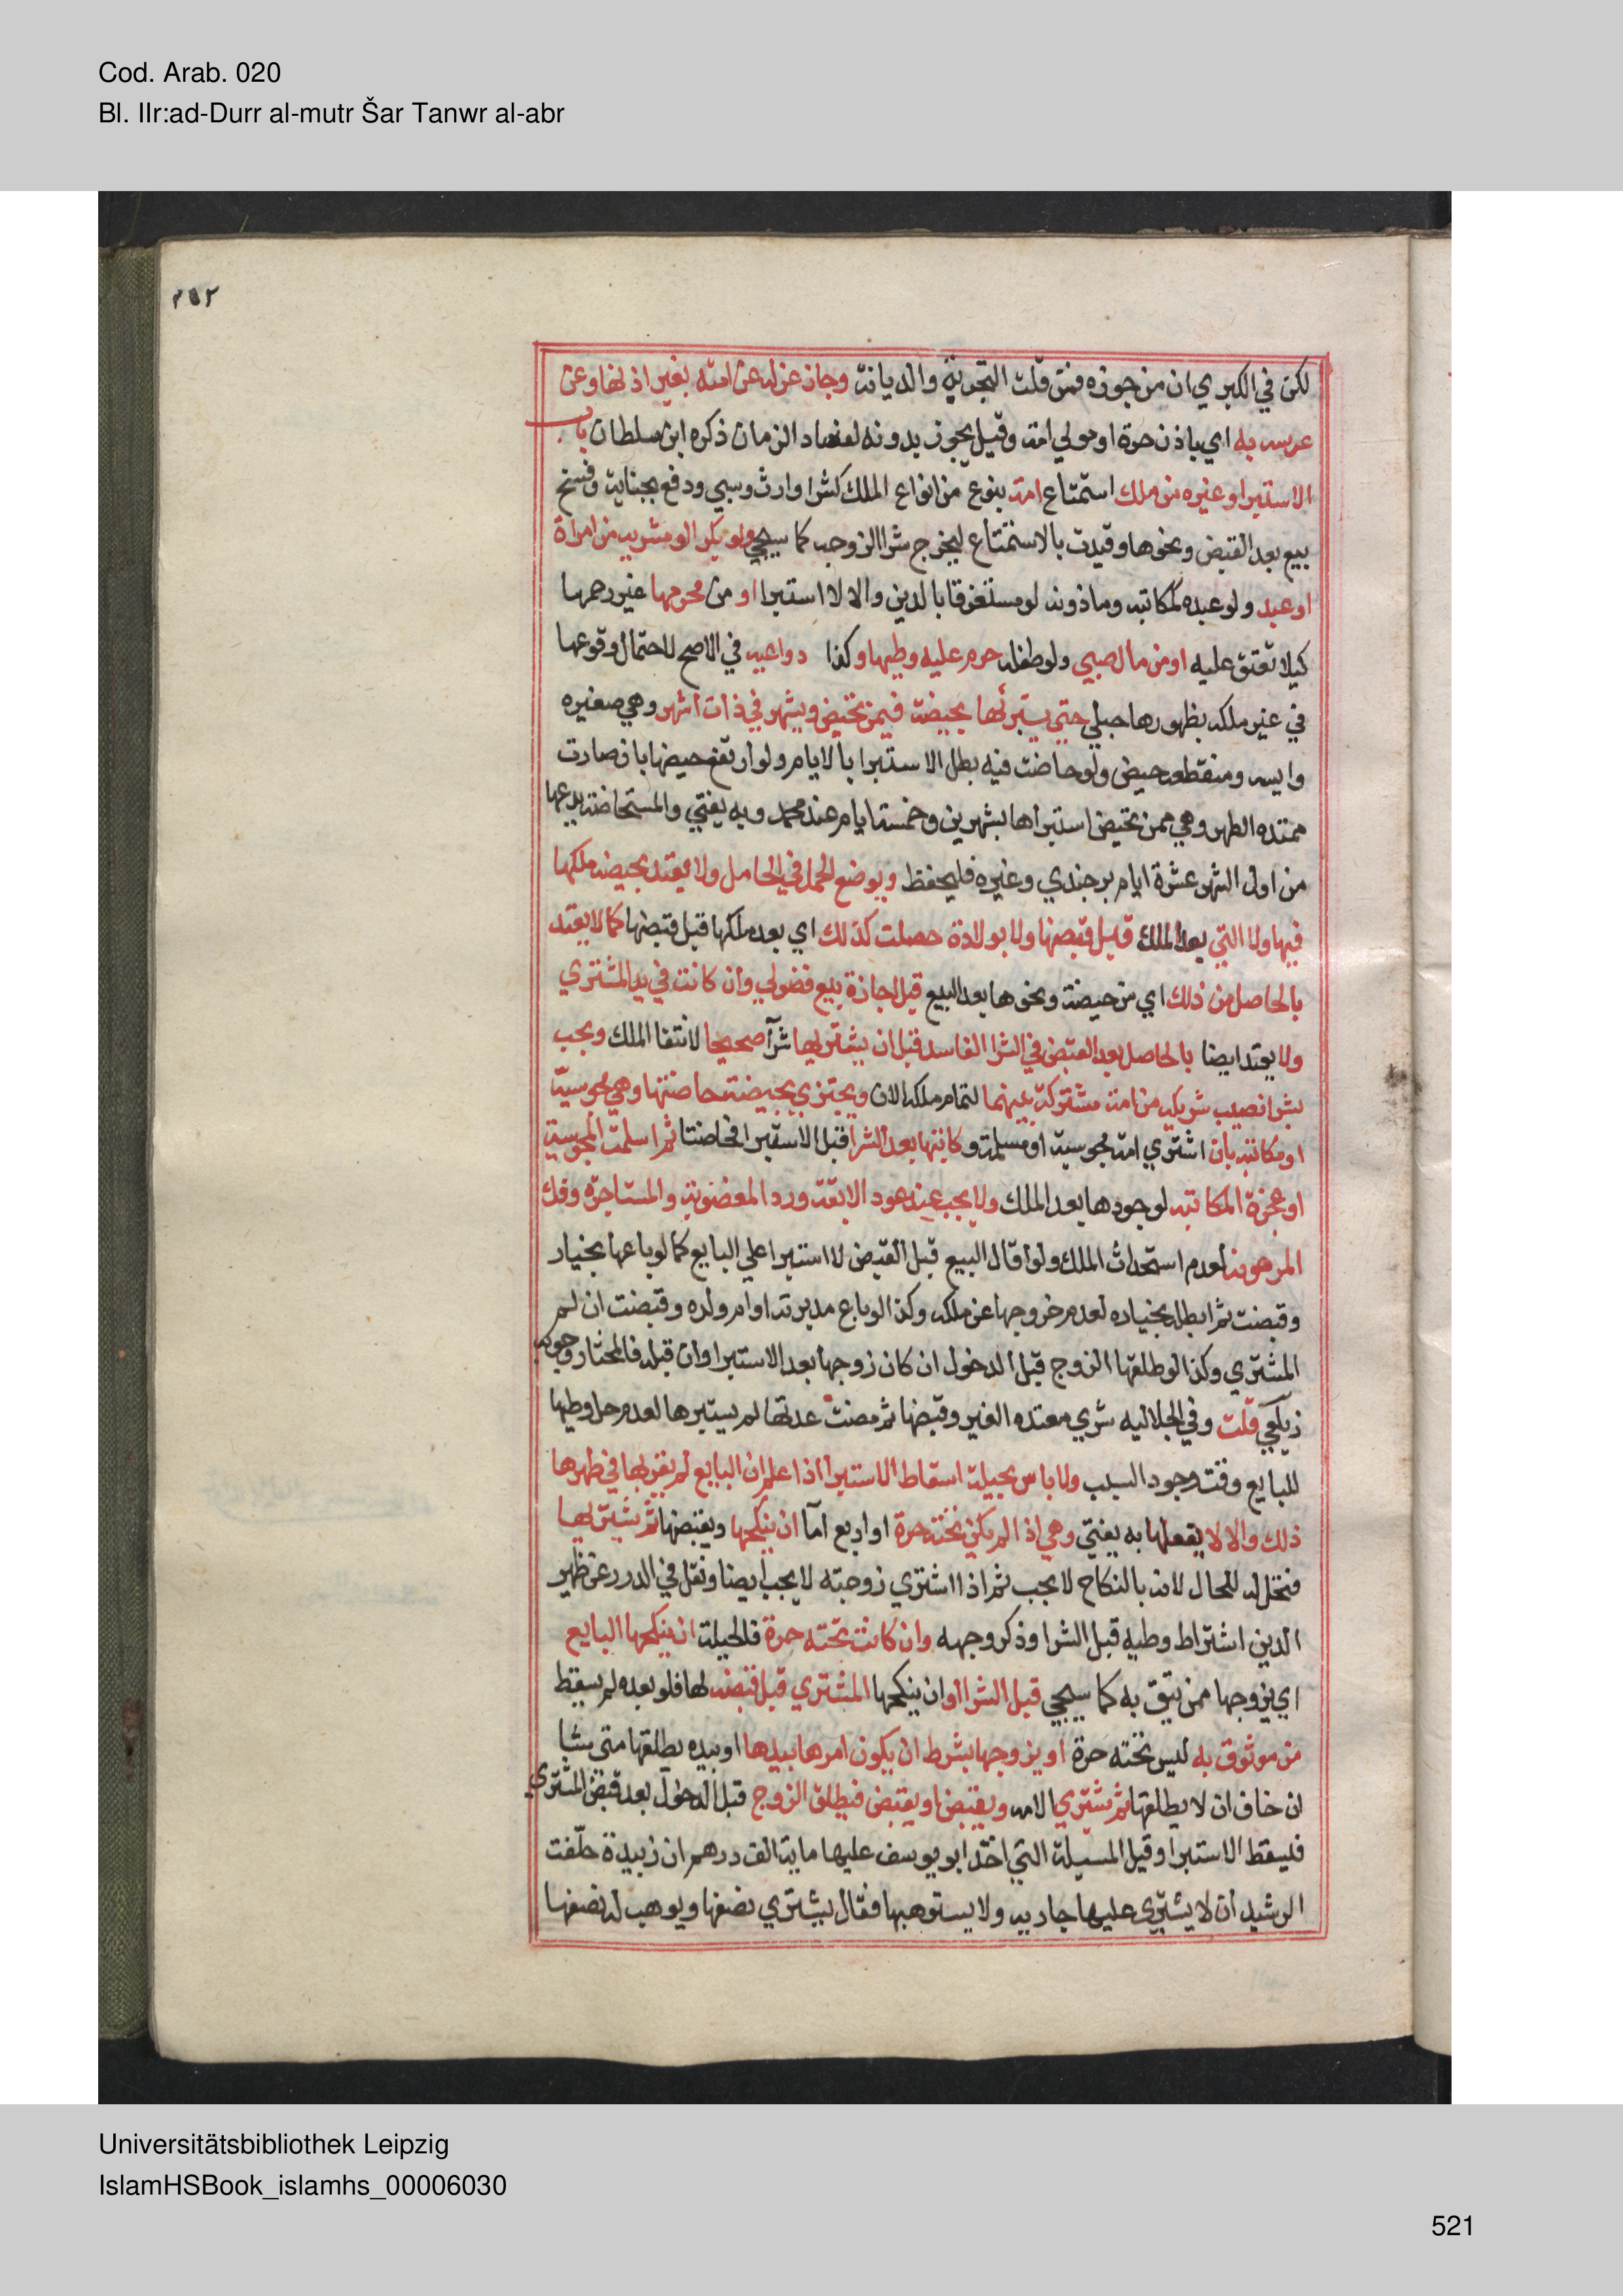 Cod. Arab. 020
Bl. IIr:ad-Durr al-mutr Šar Tanwr al-abr
٢٥٢
لكن في الكبري ان من جوزه فنتق قلت التجربة والديانة وجاز عزله عن امته بغير اذنها وعن
عرسه به اي باذن حرة او مولي امة وقيل يجوز بدونه لفساد الزمان ذكره ابن سلطان باب
الاستبرا وغيره من ملك استمتاع امة بنوع من انواع الملك كشرا وارث وسبي ودفع بجناية وفسخ
بيع بعد القبض ونحوها وقيدت بالاستمتاع ليخرج شرا الزوجه كما سيجي ولو بكرا او مشريه من امراة
او عبد ولو عبده كمكاتبه وماذونه لو مستغرقا بالدين والا لا استبرا او من محرمها غير رحمها
كيلا تعتق عليه او من مال صبي ولو طفله حرم عليه وطيها وكذا دواعيه في الاصح لاحتمال وقوعها
في غير ملكه بظهورها حبلي حتي يستبرئها بحيضة فيمن تحيض وبشهر في ذات اشهر وهي صغيره
وايسه ومنقطعه حيض ولو حاضت فيه بطل الاستبرا بالايام ولو ارتفع حيضها بان صارت
ممتده الطهر وهي ممن تحيض استبراها بشهرين وخمسة ايام عند محمد وبه يفتي والمستحاضة يدعها
من اول الشهر عشرة ايام برجندي وغيره فليحفظ وبوضع الحمل في الحامل ولا يعتد بحيضه ملكها
فيها ولا التي بعد الملك قبل قبضها ولا بولادة حصلت كذلك اي بعد ملكها قبل قبضها كما لا يعتد
بالحاصل من ذلك اي من حيضة ونحوها بعد البيع قبل اجازة بيع فضولي وان كانت في يد المشتري
ولا يعتد ايضا بالحاصل بعد القبض في الشرا الفاسد قبل ان يشتريها شرآ صحيحا لانتفا الملك ويجب
بشرا نصيب شريكه من امة مشتركة بينهما لتمام ملكه الان ويجتزي بحيضة حاضتها وهي مجوسية
او مكاتبه بان اشتري امة مجوسية او مسلمة وكاتبها بعد الشرا قبل الاستبرا فحاضتا ثم اسلمت المجوسية
او عجزة المكاتبه لوجودها بعد الملك ولا يجب عند عود الابقة ورد المغصوبة والمستاجرة وفك
المرهونه لعدم استحداث الملك ولو اقال البيع قبل القبض لا استبرا علي البايع كما لو باعها بخيار
وقبضت ثم ابطله بخياره لعدم خروجها عن ملكه وكذا لو باع مدبرته او ام ولده وقبضت ان لم
المشتري وكذا لو طلقها الزوج قبل الدخول ان كان زوجها بعد الاستبرا وان قبله فالمختار وجوبه
زيلعي قلت وفي الجلاليه شري معتده الغير وقبضها ثم مضت عدتها لم يستبرها لعدم حل وطيها
للبايع وقت وجود السبب ولا باس بحيلة اسقاط الاستبرا اذا علم ان البايع لم يقربها في طهرها
ذلك والا لا يفعلها به يفتي وهي اذا لم يكن تحته حرة او اربع اما ان ينكحها ويقبضها ثم يشتريها
فتحل له للحال لانه بالنكاح لا يجب ثم اذا اشتري زوجته لا يجب ايضا ونقل في الدرر عن ظهير
الدين اشتراط وطيه قبل الشرا وذكر وجهه وان كانت تحته حرة فالحيلة ان ينكحها البايع
اي يزوجها ممن يثق به كما سيجي قبل الشرا او ان ينكحها المشتري قبل قبضه لها فلو بعده لم يسقط
من موثوق به ليس تحته حرة او يزوجها بشرط ان يكون امرها بيدها او بيده يطلقها متي شا
ان خاف ان لا يطلقها ثم يشتري الامه ويقبض او يقبض فيطلق الزوج قبل الدخول بعد قبض المشتري
فيسقط الاستبرا وقيل المسيلة التي اخذ ابو يوسف عليها ماية الف درهم ان زبيدة حلفت
الرشيد ان لا يشتري عليها جاريه ولا يستوهبها فقال يشتري نصفها ويوهب له نصفها
Universitätsbibliothek Leipzig
IslamHSBook_islamhs_00006030
521